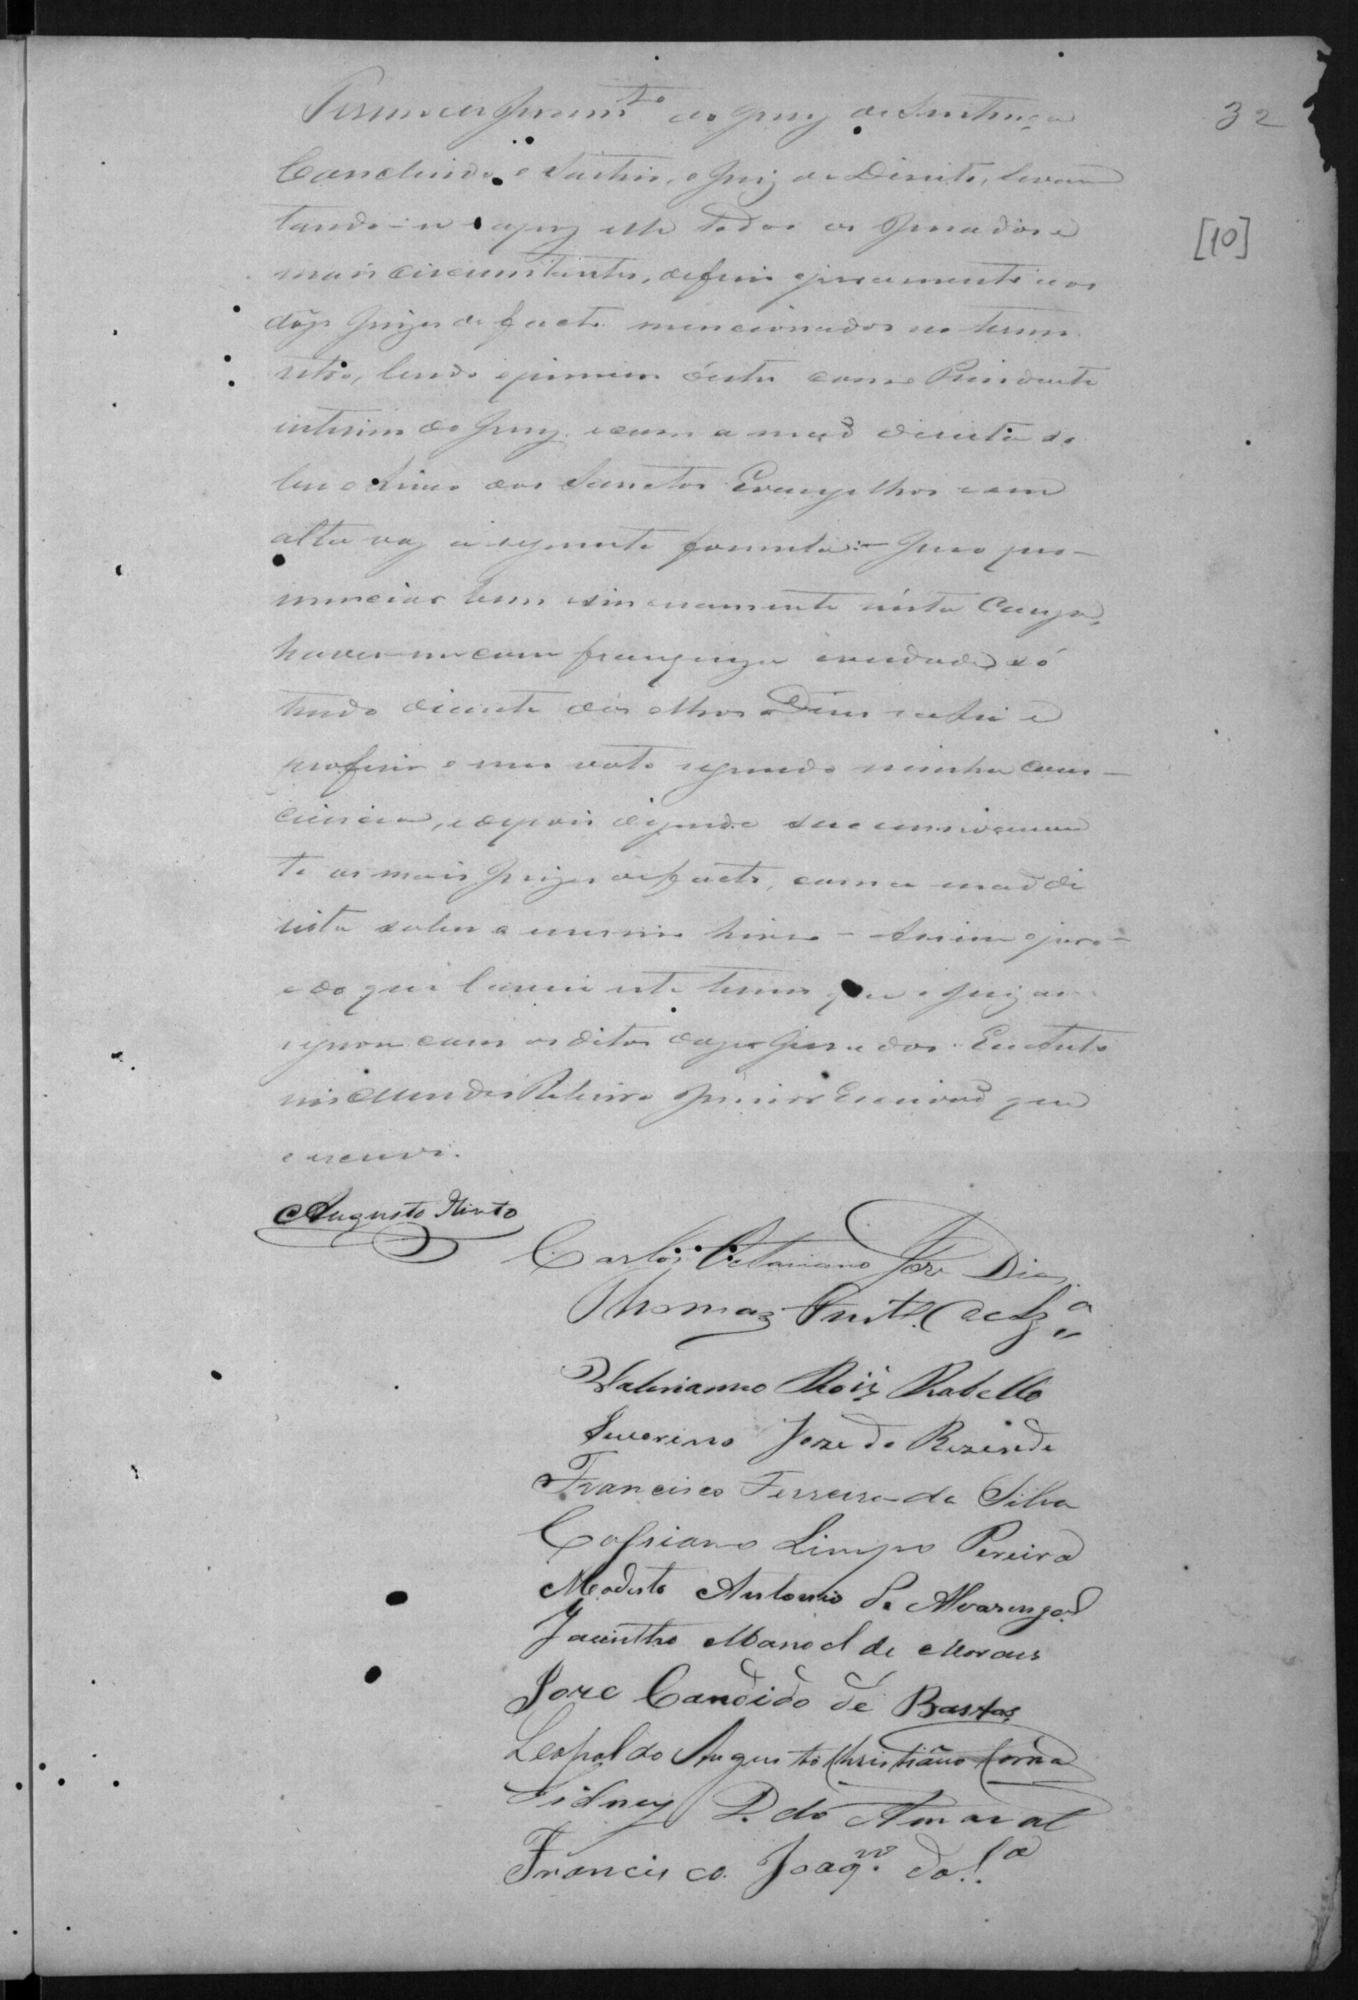 Termo de Juram.to do Jury de Sentença
32
Concluido o sorteio, o Juiz de Direito, levan
tando-se e apoz elle todos os Jurados e
[10]
mais circumstantes, deferio o juramento aos
dôze Juizes de facto mencionados no termo
retro, lendo o primeiro d'estes como Presidente
interino do Jury, e com a mão direita so
bre o Livro dos Sanctos Evangelhos e em
alta voz a seguinte formula:- Juro pro-
nunciar bem e sinceramente n'esta Causa,
haver-me com franqueza e verdade, só
tendo diante dos olhos a Deus e a Lei e
proferir o meu voto segundo minha cons-
ciencia, e depois dizendo successivamen
te os mais Juizes de facto, com a mão di
reita sobre o mesmo livro - Assim o juro-
e do que lavrei este termo que o Juiz as
signou com os ditos doze Jurados. Eu Anto
nio Mendes Ribeiro Junior Escrivão que
o escrevi.
Augusto Pinto
Carlos Octaviano José Dias
Thomaz
Valerianno Roiz Rabello
Severino Joze de Rezende
Francisco Ferreira da Silva
Cassiano Limpo Pereira
Modesto Antonio de Alvarenga
Jacintho Manoel de Moraes
Jose Candido de Bastos
Leopoldo Augusto Christiano Corrêa
Sidney P. do Amaral
Francisco Joaq.m da S.a